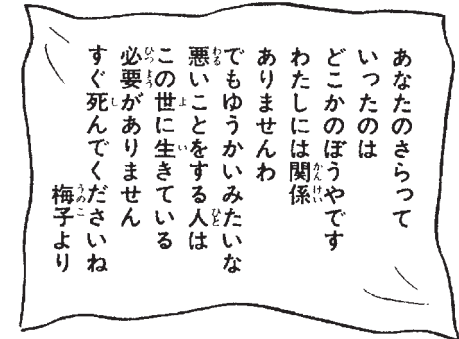 あなたのさらって
いったのは
どこかのぼうやです
わたしには関係
ありませんわ
でもゆうかいみたいな
悪いことをする人は
この世に生きている
必要がありません
すぐ死んでくださいね
梅子より